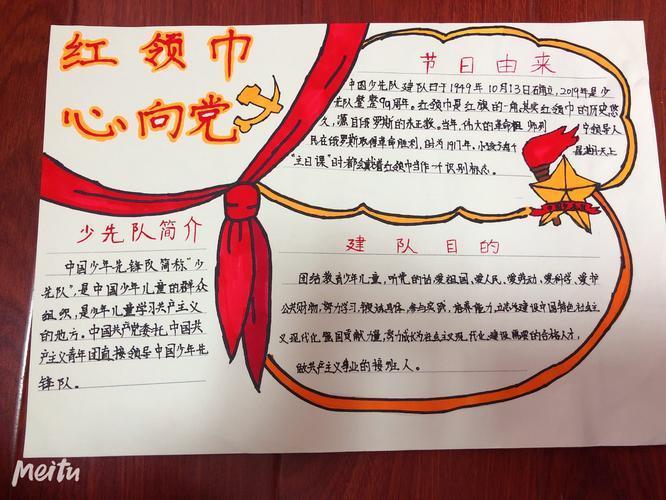 红领巾
心向党
节日由来
中国少年队建队日于1949年10月13日确立,2019年是少
先队整整70周年。红领巾是红旗的一角,其实红领巾的历史悠
久,源自俄罗斯的东正教。当年,伟大的革命 列 宁领导人
民在俄罗斯取得革命胜利,时为1917年,小孩子每个 星期天上
"主日课"时都会戴着红领巾当作一个识别标志。
中国少先队
少先队简介
中国少年先锋队简称"少
先队",是中国少年儿童的群众
组织,是少年儿童学习共产主义
的地方。中国共产党委托,中国共
产主义青年团直接领导中国少年先
锋队。
建队目的
团结教育少年儿童,听党的话,爱祖国、爱人民、爱劳动、爱科学、爱护
公共财物,努力学习,锻炼身体,参与实践,培养能力,立志为建设中国特色社会主
义现代化强国贡献力量,努力成长为社会主义现代化建设需要的合格人才,
做共产主义事业的接班人。
meitu